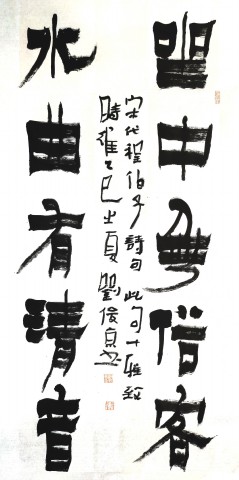 坐中無俗客
水曲有清音
宋代程伯子詩句此句十雅致
時維乙巳之夏劉俊京書